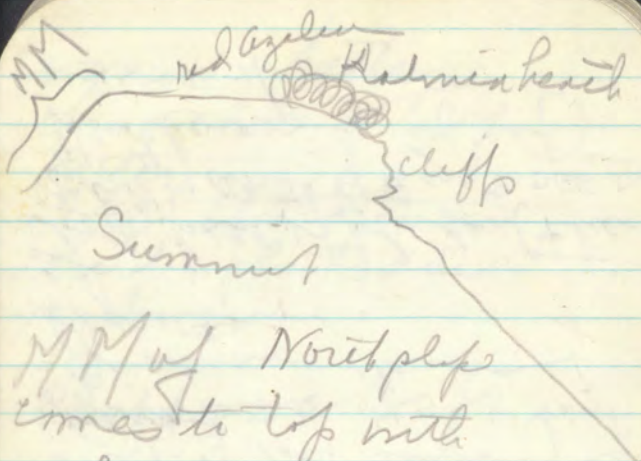 MM
red azalea
Kalmia heath
cliffs
Summit
MM of North slope
comes to top with